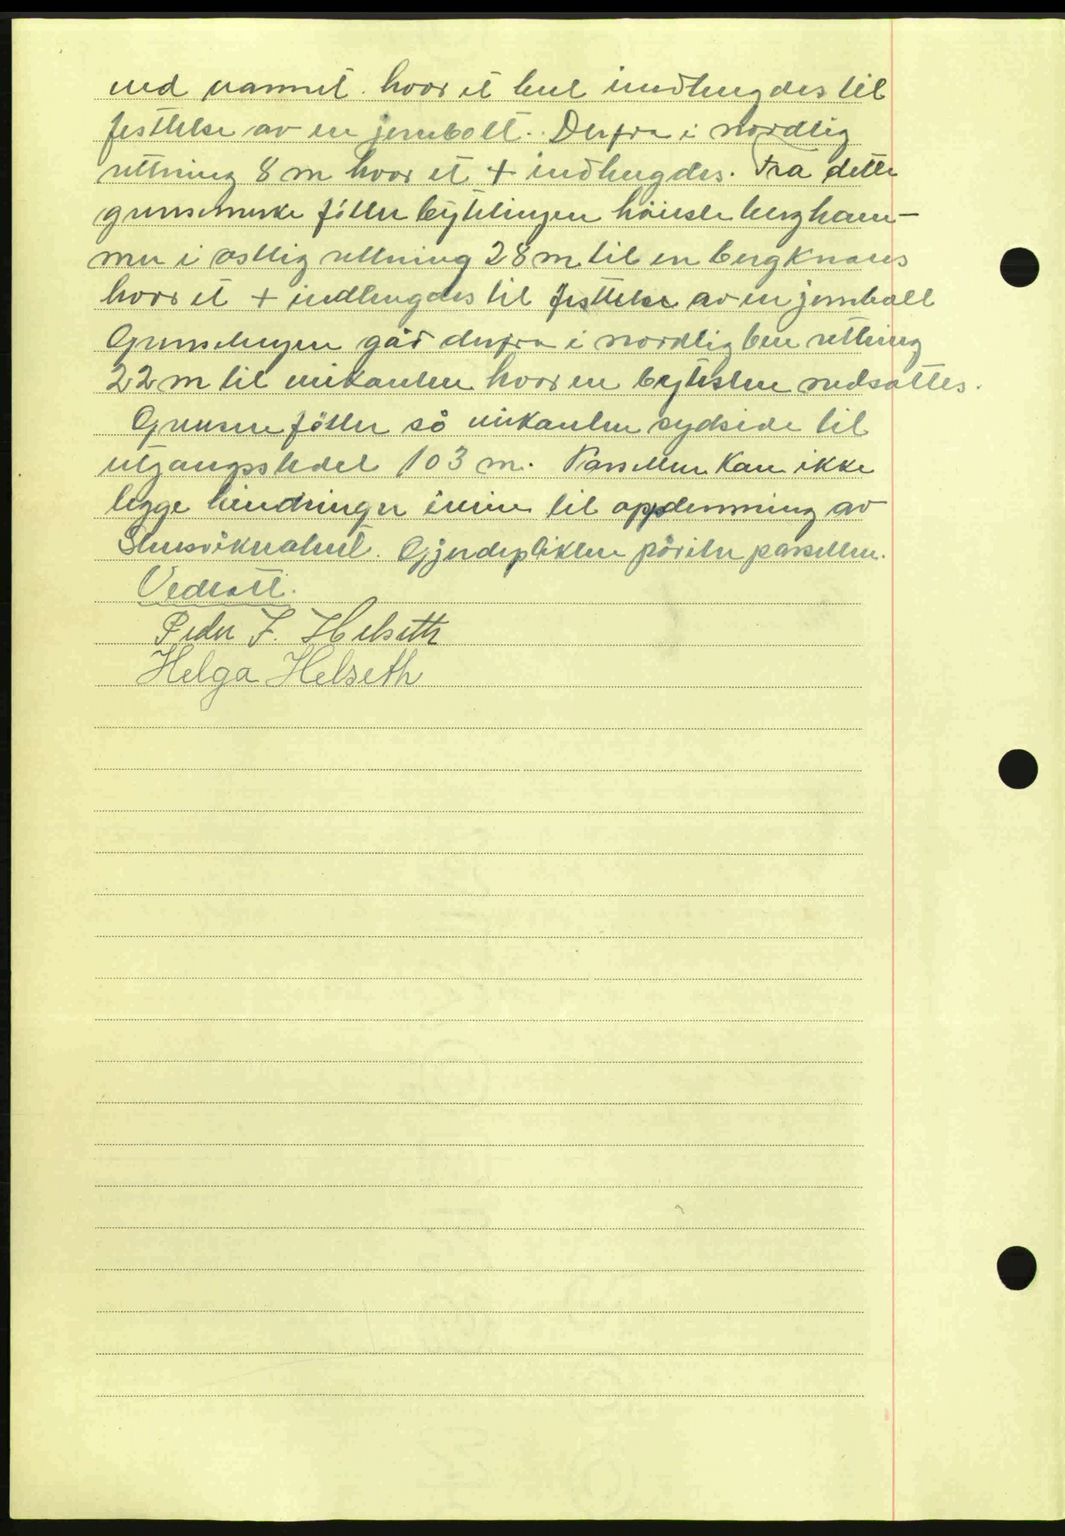 ved vannet hvor et hul indhugdes til
festtelse av en jernbolt. Derfra i nordlig
rettning 8 m hvor et + indhugdes. Fra dette
grensemerke følger bytelinjen höieste bergham-
mer i östlig rettning 28 m til en bergknaus
hvor et + indhugdes til festtelse av en jernbolt
Grenselinjen går derfra i nordlig ben rettning
22 m til veikanten hvor en bytesten nedsattes.
Grensen följer så veikanten sydside til
utgangsstedet 103 m. Parsellen kan ikke
legge hindringer i veien til oppdemning av
Gjerdeplikten påviler parsellen.
Vedtatt.
Peder J. Helseth
Helga Helseth